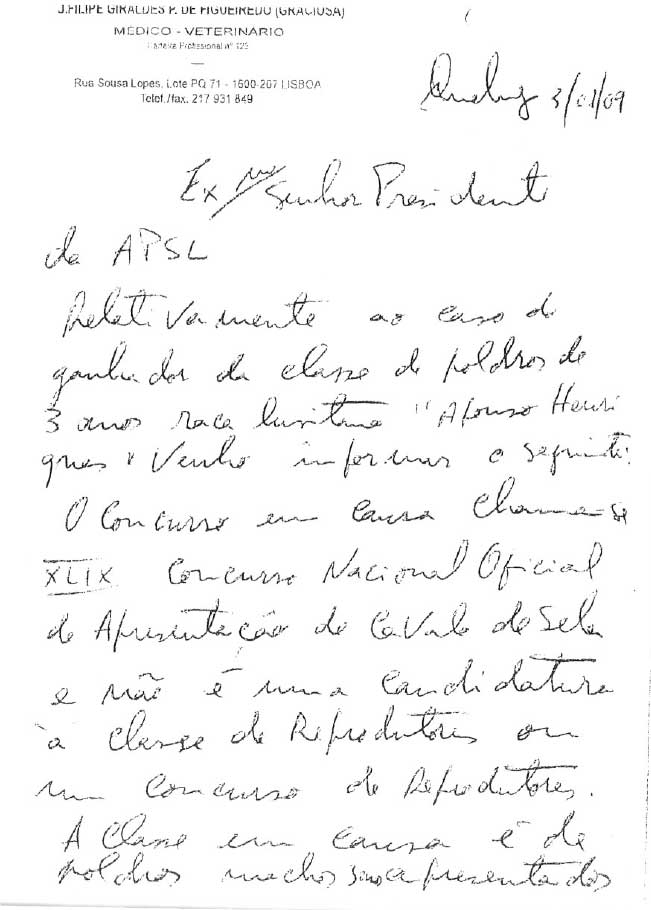 J.FILIPE GIRALDES P. DE FIGUEIREDO (GRACIOSA)
MÉDICO - VETERINÁRIO
Carteira Profissional nº 123
Rua Sousa Lopes, Lote PQ 71 - 1600-207 LISBOA
Telef./fax. 217 931 849
Queluz 3/01/09
Exmo Senhor Presidente
da APSL
Relativamente ao caso do
ganhador da classe de poldros de
3 anos raca lusitana "Afonso Henri
ques" Venho informar o seguinte:
O Concurso em causa chama-se
XLIX Concurso Nacional Oficial
de Apresentação do Cavalo de Sela
e não é uma Candidatura
à classe de Reprodutores ou
um Concurso de Reprodutores.
A Classe em causa é de
poldros machos apresentados